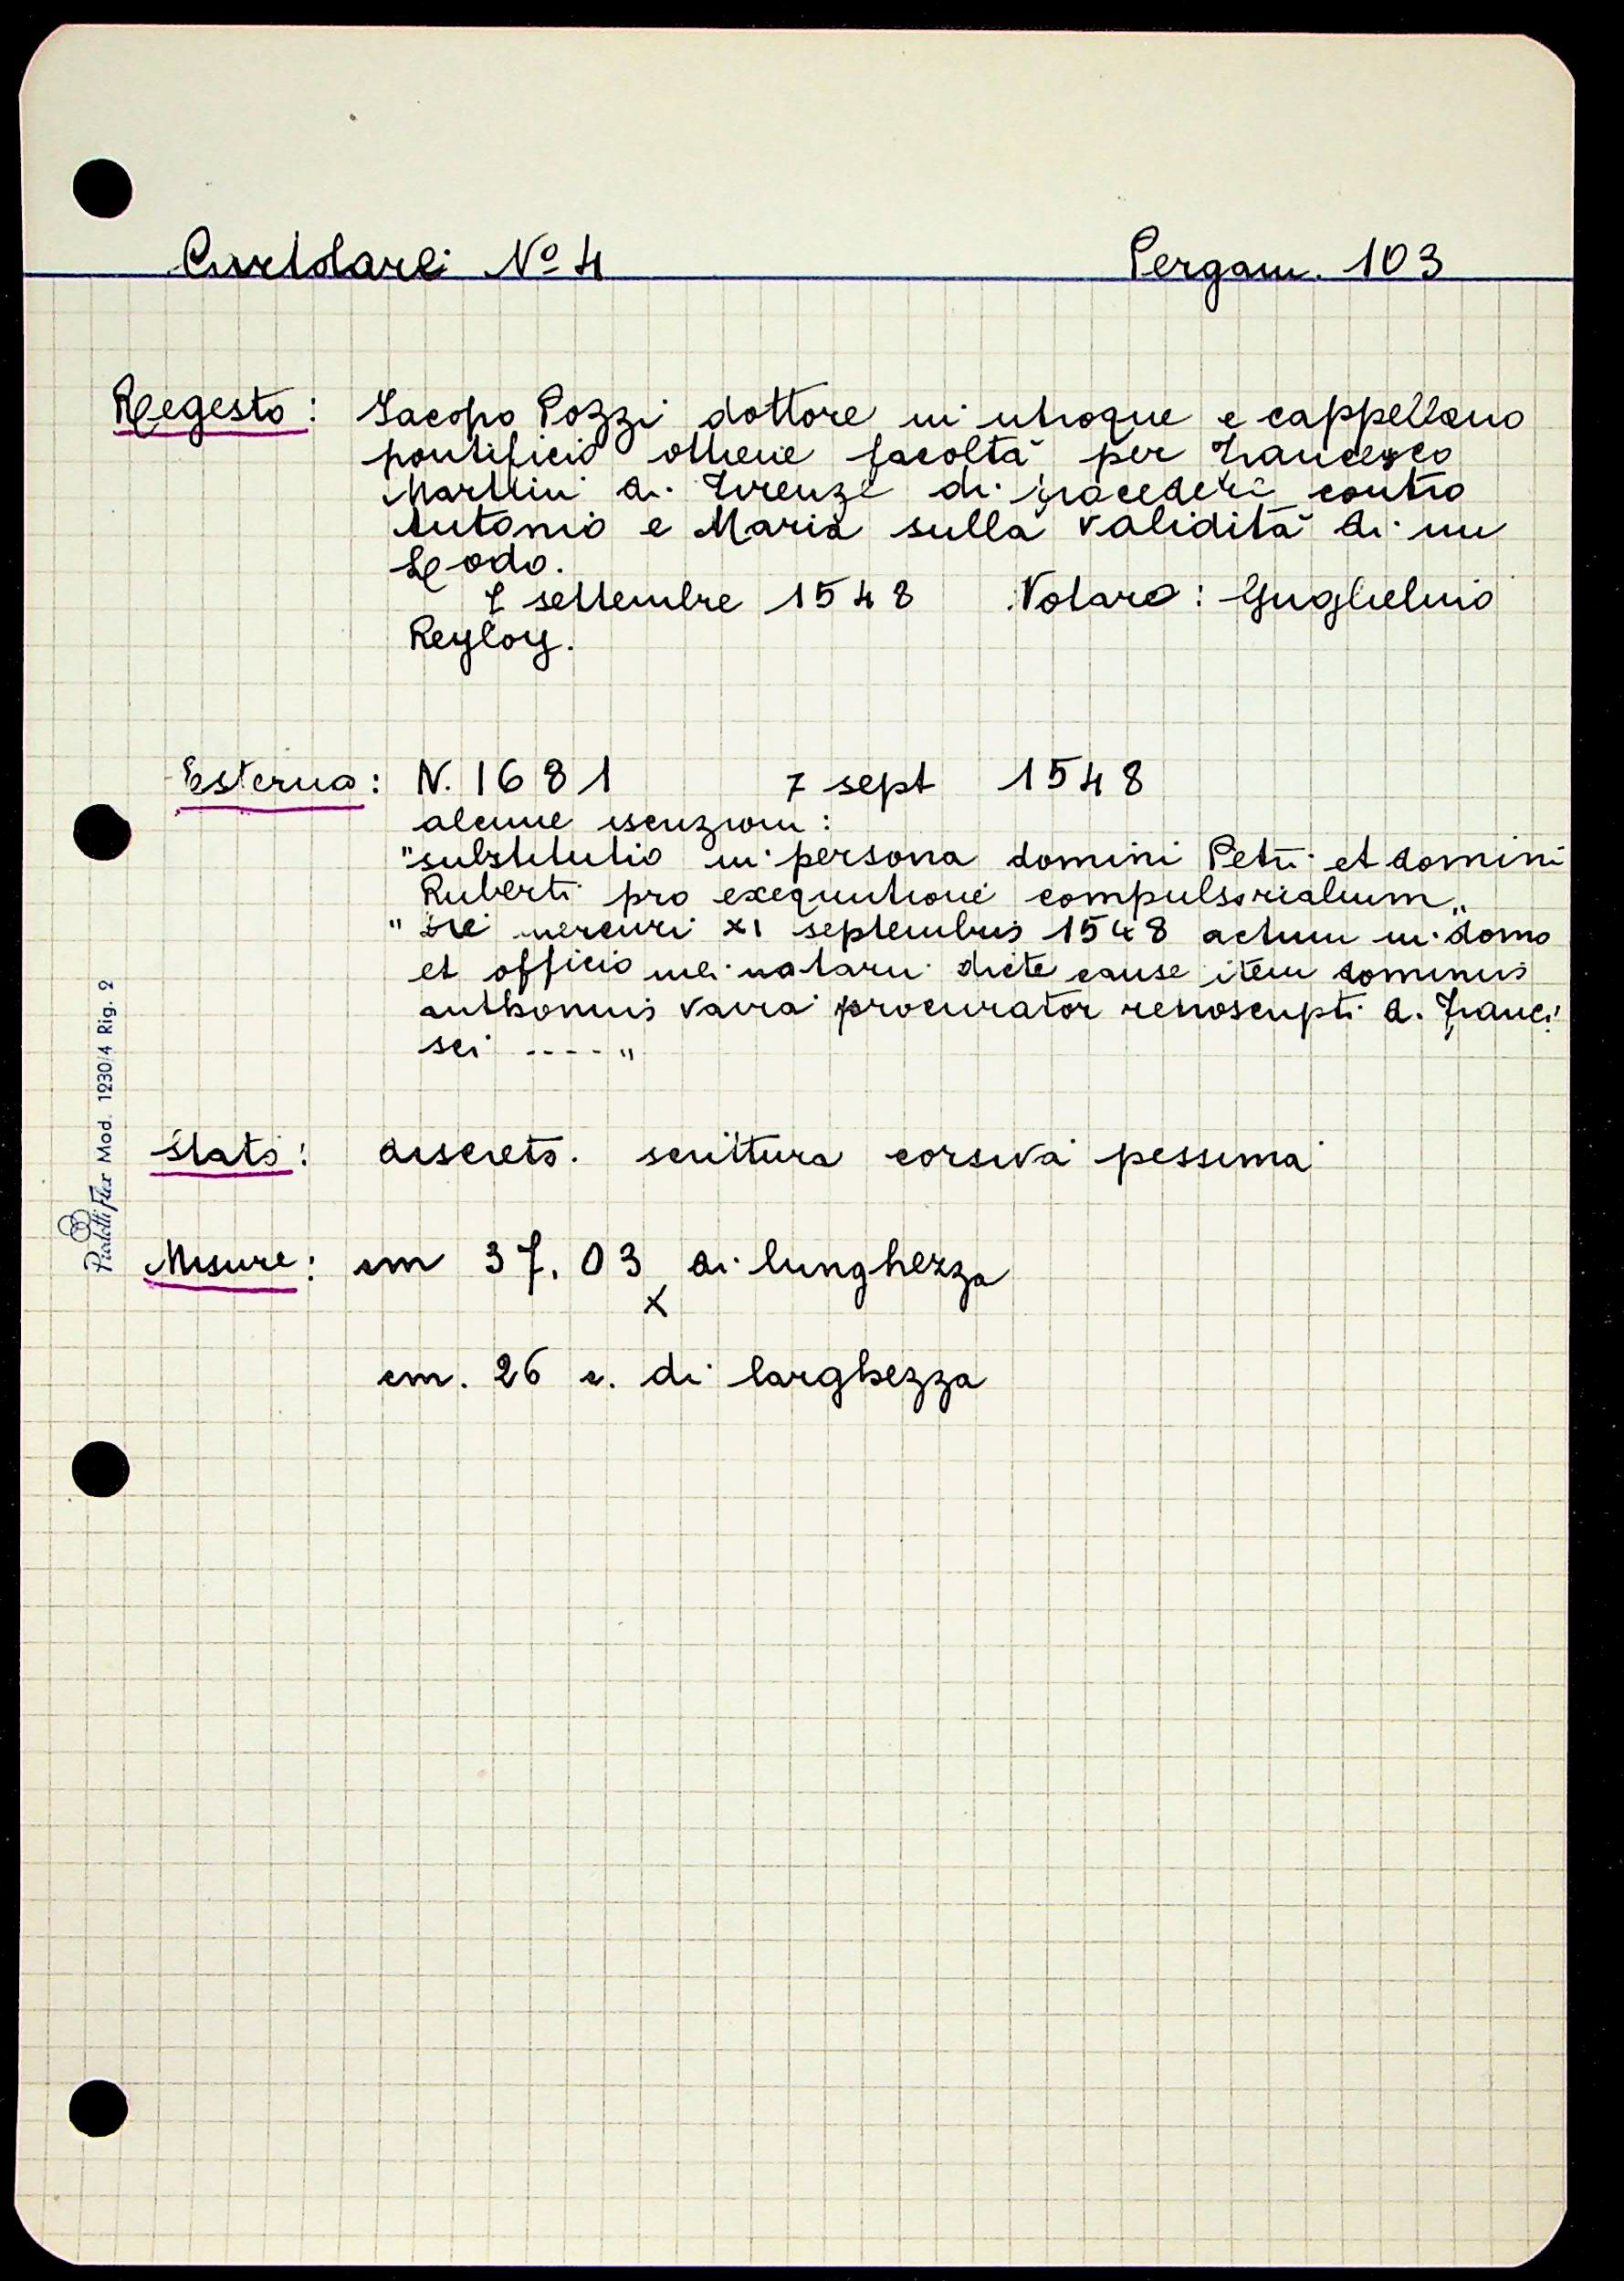 Cartolare N° 4 Pergam. 103
Regesto: Iacopo Pozzi dottore in utroque e cappellano
pontificio ottiene facoltà per Francesco
Martini di Firenze di procedere contro
Antonio e Maria sulla validità di un
Lodo.
7 settembre 1548 Notaro: Guglielmo
Reyloy.
Esterno: N. 1681 7 sept 1548
alcune iscrizioni:
"substitutio in persona domini Petri et domini
Ruberti pro exequutione compulsorialium"
"Die mercuri XI septembris 1548 actum in domo
et officio mei notarii dicte cause item dominus
anthonius vaira procurator retroscripti d. Franci
sci ----"
Stato: discreto. scrittura corsiva pessima
Misure: cm 37.03 di lunghezza
x
cm. 26 c. di larghezza
Pialetti Flex Mod. 1230/4 Rig. 2